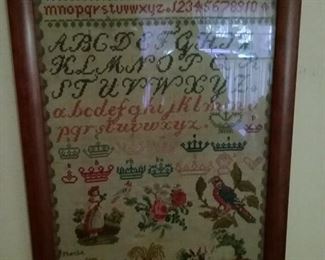 mnopqrstuvwxyz.12345678910
ABCDEFGHIJ
KLMNOPQR
STUVWXYZ
abcdefghijklmno
pqrstuvwxyz.